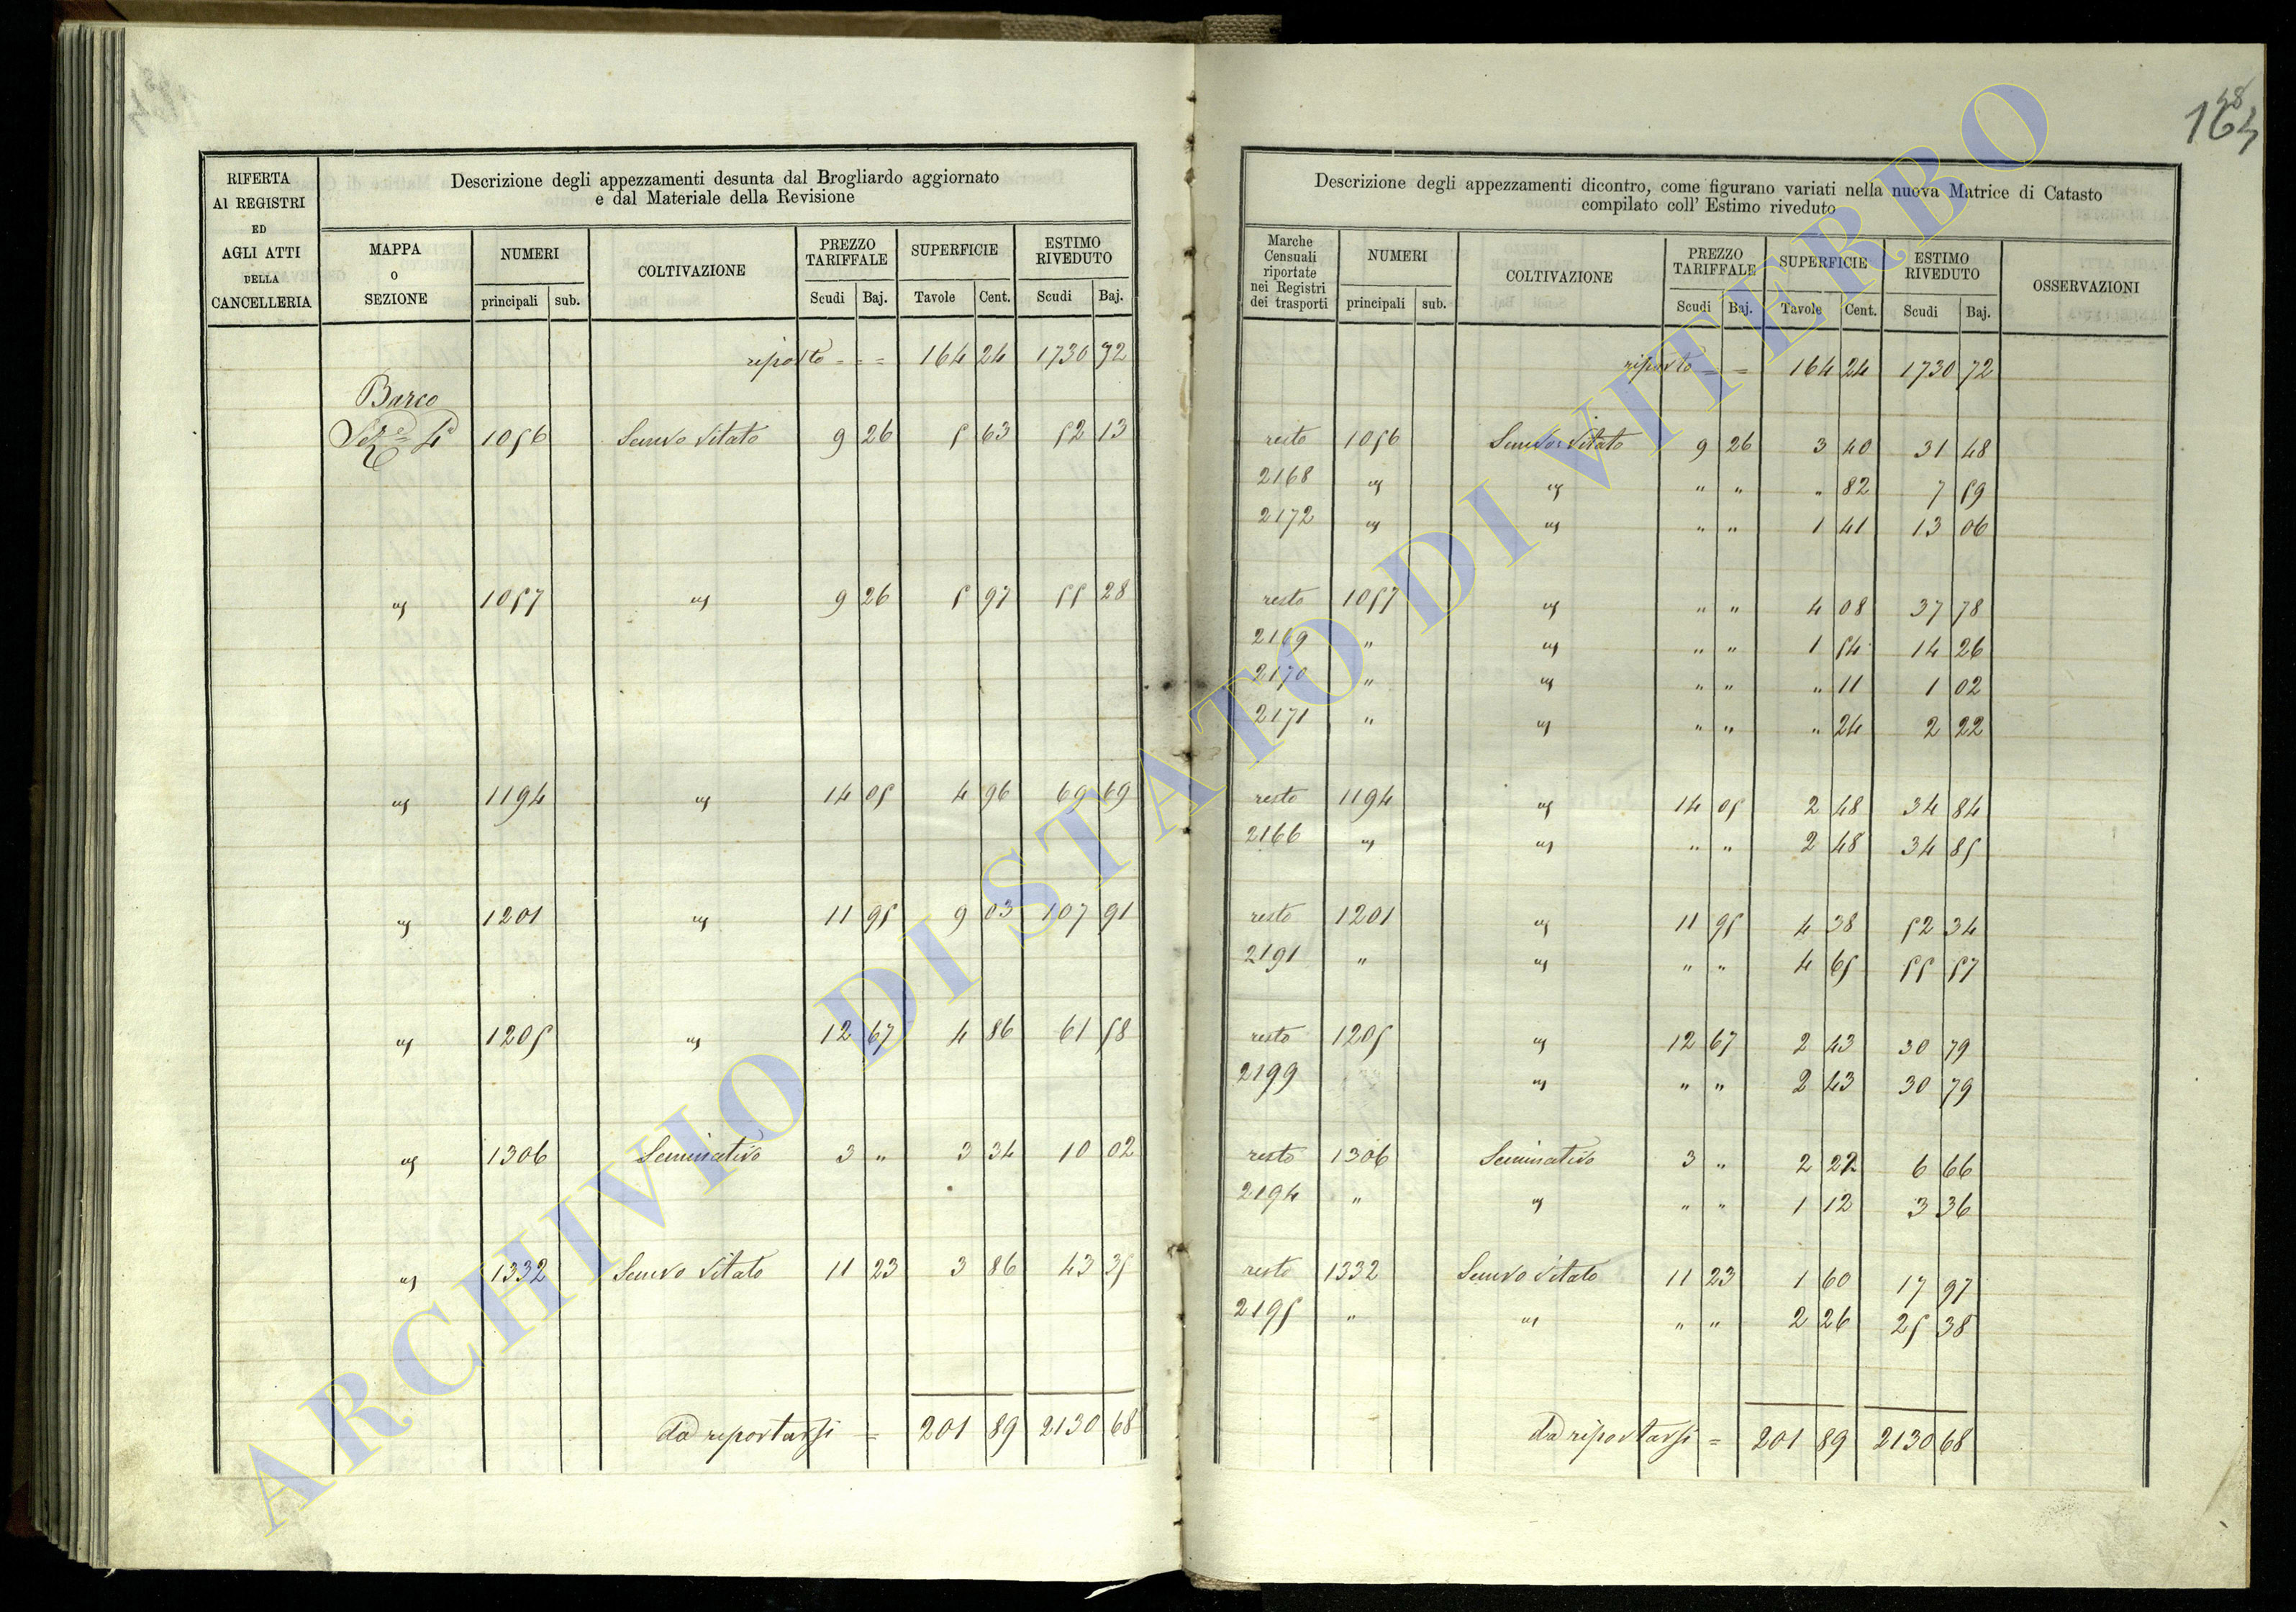 164
48
RIFERTA
AI REGISTRI
ED
AGLI ATTI
DELLA
CANCELLERIA
Descrizione degli appezzamenti desunta dal Brogliardo aggiornato
e dal Materiale della Revisione
MAPPA
O
SEZIONE
NUMERI
principali sub.
COLTIVAZIONE
PREZZO
TARIFFALE
Scudi Baj.
SUPERFICIE
Tavole Cent.
ESTIMO
RIVEDUTO
Scudi Baj.
riporto = = = 164 24 1730 72
Barco
Sez.e 4a 1056 Semvo Vitato 9 26 5 63 52 13
" 1057 " 9 26 5 97 55 28
" 1194 " 14 05 4 96 69 69
" 1201 " 11 95 9 03 107 91
" 1205 " 12 67 4 86 61 58
" 1306 Seminativo 3 " 3 34 10 02
" 1332 Semvo Vitato 11 23 3 86 43 35
da riportarsi = 201 89 2130 68
Descrizione degli appezzamenti dicontro, come figurano variati nella nuova Matrice di Catasto
compilato coll' Estimo riveduto
Marche
Censuali
riportate
nei Registri
dei trasporti
NUMERI
principali sub.
COLTIVAZIONE
PREZZO
TARIFFALE
Scudi Baj.
SUPERFICIE
Tavole Cent.
ESTIMO
RIVEDUTO
Scudi Baj.
OSSERVAZIONI
riporto = = 164 24 1730 72
resto 1056 Semvo Vitato 9 26 3 40 31 48
2168 " " " " " 82 7 59
2172 " " " " 1 41 13 06
resto 1057 " " " 4 08 37 78
2169 " " " " 1 54 14 26
2170 " " " " " 11 1 02
2171 " " " " " 24 2 22
resto 1194 " 14 05 2 48 34 84
2166 " " " " 2 48 34 85
resto 1201 " 11 95 4 38 52 34
2191 " " " " 4 65 55 57
resto 1205 " 12 67 2 43 30 79
2199 " " " 2 43 30 79
resto 1306 Seminativo 3 " 2 22 6 66
2194 " " " " 1 12 3 36
resto 1332 Semvo Vitato 11 23 1 60 17 97
2195 " " " " 2 26 25 38
da riportarsi = 201 89 2130 68
ARCHIVIO DI STATO DI VITERBO